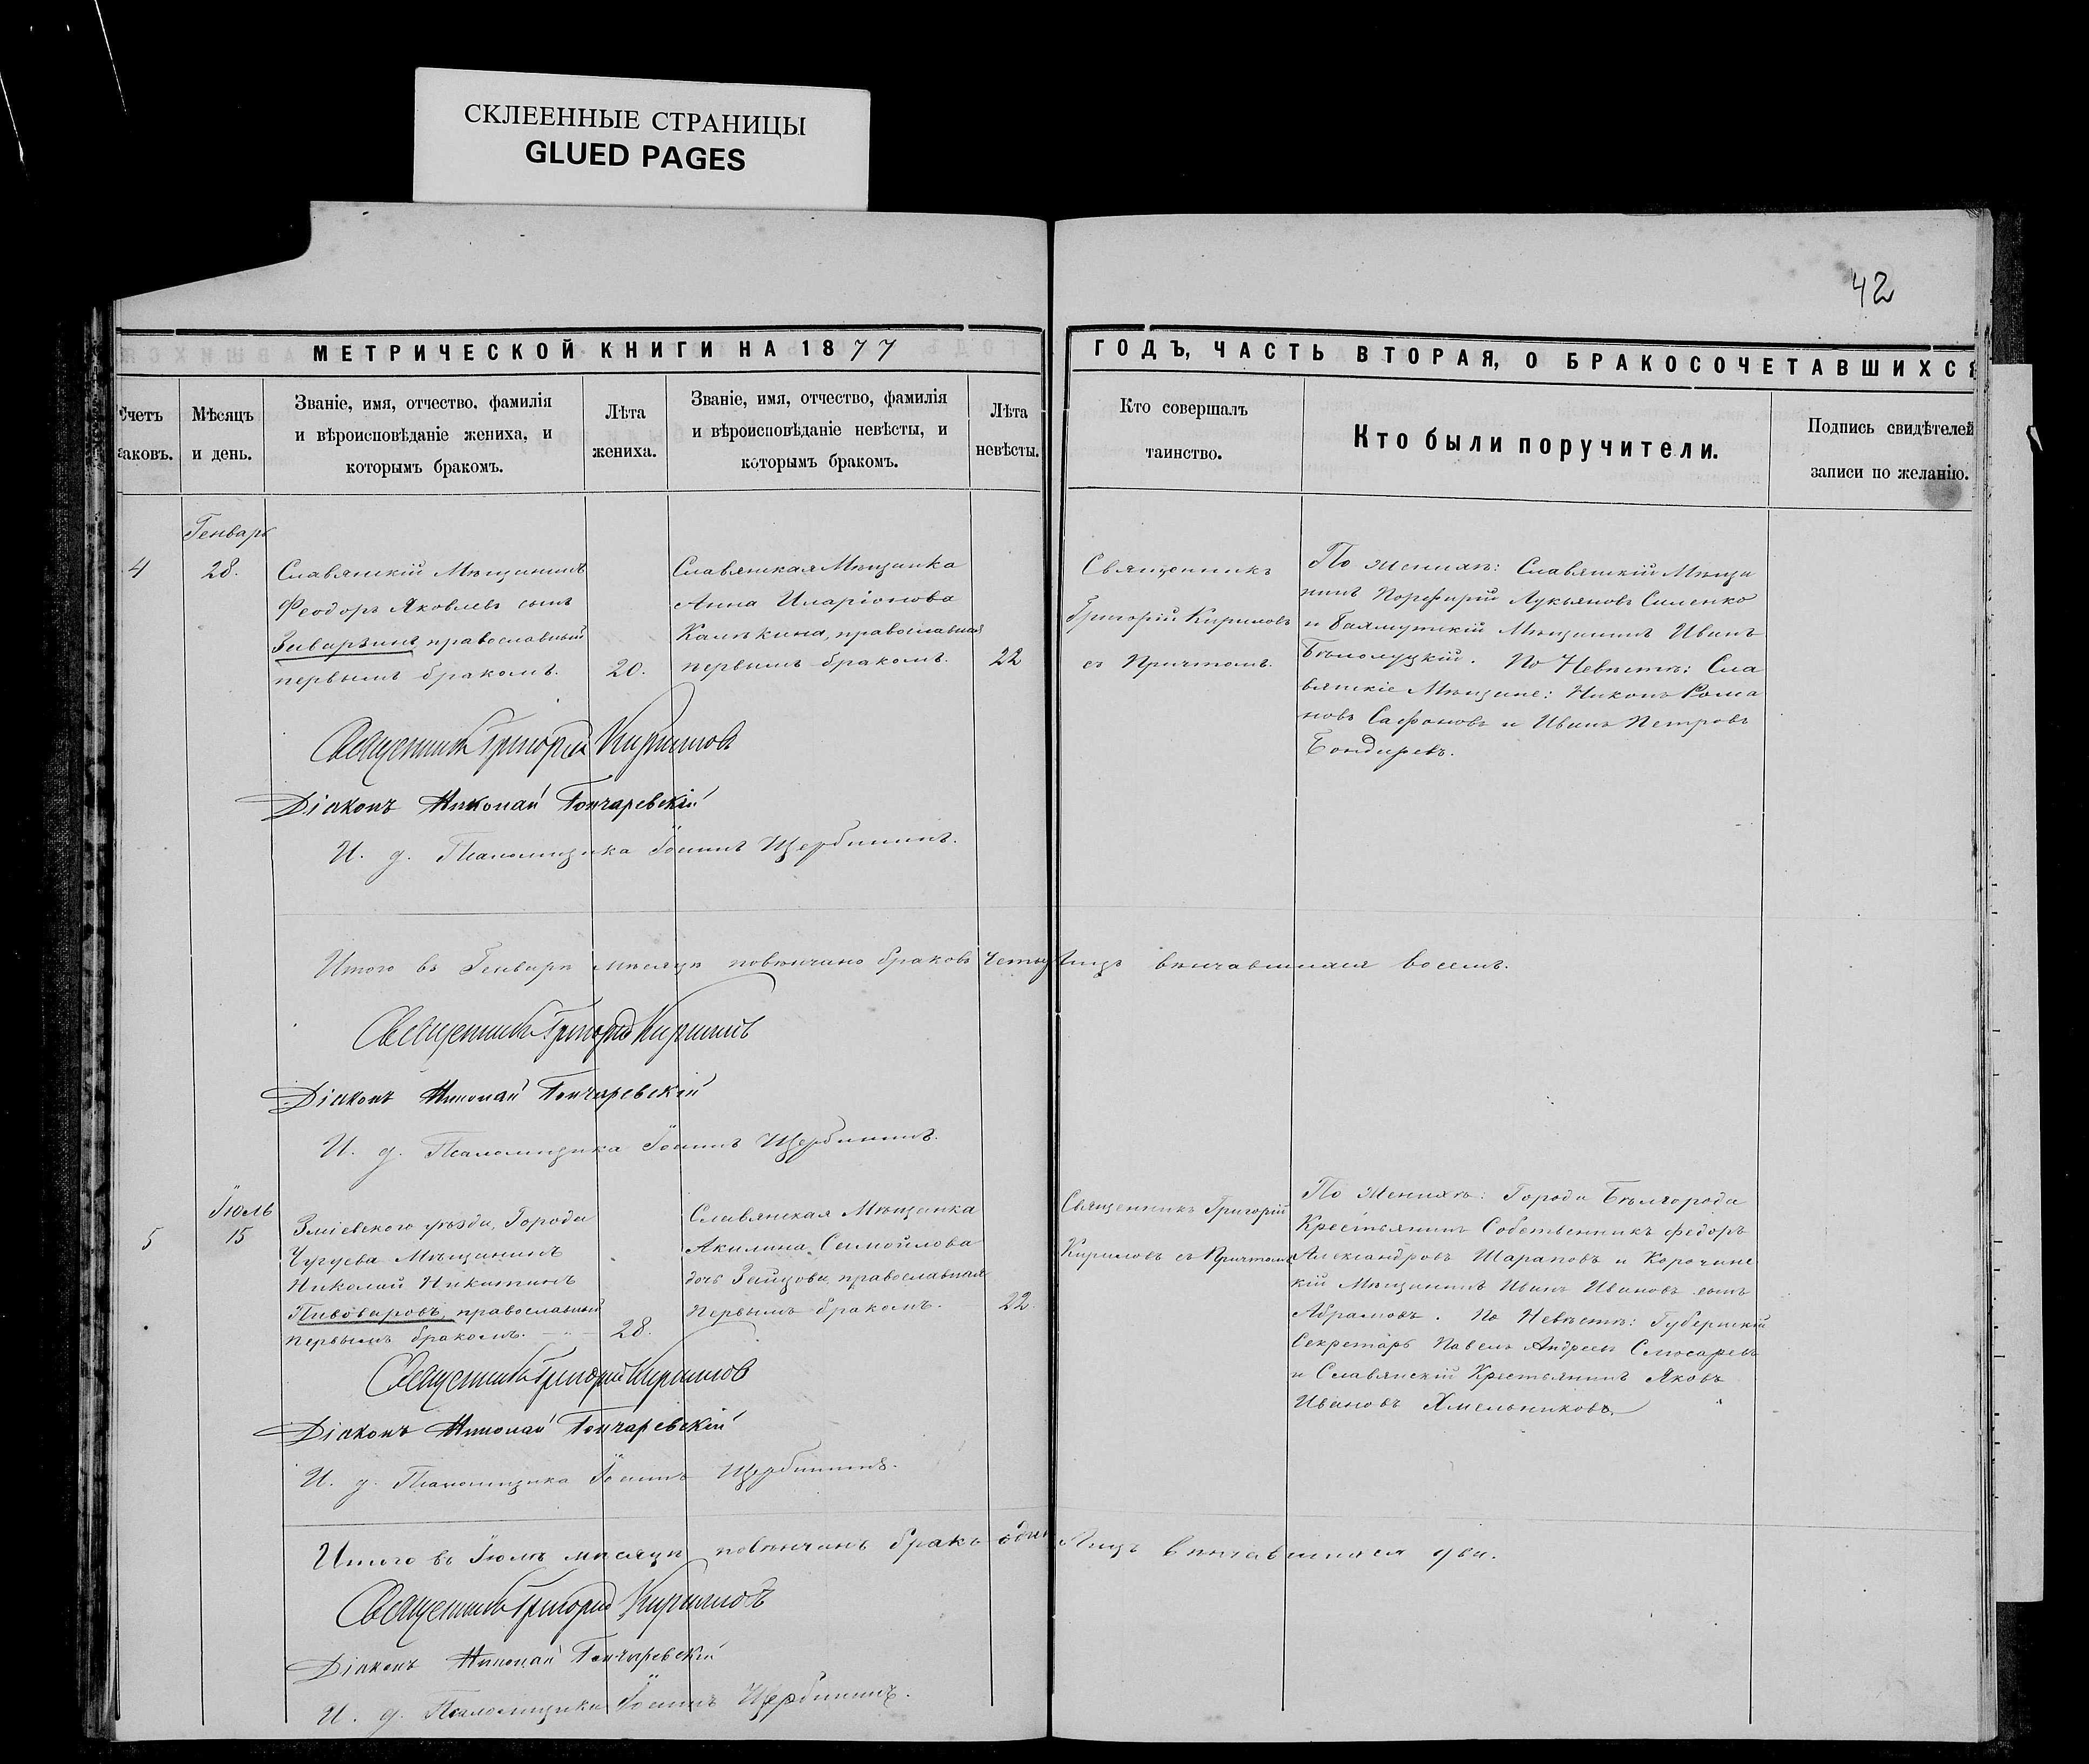 СКЛЕЕННЫЕ СТРАНИЦЫ
GLUED PAGES
42
МЕТРИЧЕСКОЙ КНИГИ НА 1877
Счетъ
браковъ.
Мѣсяцъ
и день.
Званіе, имя, отчество, фамилія
и вѣроисповѣданіе жениха, и
которымъ бракомъ.
Лѣта
жениха.
Званіе, имя, отчество, фамилія
и вѣроисповѣданіе невѣсты, и
которымъ бракомъ.
Лѣта
невѣсты.
ГОДЪ, ЧАСТЬ ВТОРАЯ, О БРАКОСОЧЕТАВШИХСЯ
Кто совершалъ
таинство.
Кто были поручители.
Подпись свидѣтелей
записи по желанію.
4
Генварь
28.
Славянскій Мѣщанинъ
Феодоръ Яковлевъ сынъ
православный
первымъ бракомъ.
20.
Славянская Мѣщанка
Анна Иларіонова
православная
первымъ бракомъ.
22
Священникъ
Григорій Кириловъ
съ Причтомъ.
По женихѣ: Славянскій Мѣща
нинъ Порфирій Лукьяновъ Силенко
и Бахмутскій Мѣщанинъ Иванъ
Бѣлолуцкій. По Невѣстѣ: Сла
вянскіе Мѣщане: Никонъ Рома
новъ Сафоновъ и Иванъ Петровъ
Бондаревъ.
Священникъ Григорій Кириловъ
Діаконъ Николай Гончаревскій
И. д. Псаломщика Іоаннъ Щербининъ.
Итого въ Генварѣ мѣсяцѣ повѣнчано браковъ четыре Лицъ вѣнчавшихся восемь.
Священникъ Григорій Кириловъ
Діаконъ Николай Гончаревскій
И. д. Псаломщика Іоаннъ Щербининъ.
5
Іюль
15
Зміевскаго уѣзда, Города
Чугуева Мѣщанинъ
Николай Никитинъ
Пивоваровъ, православный
первымъ бракомъ.
28.
Славянская Мѣщанка
Акилина Самойлова
дочь Зайцова, православная
первымъ бракомъ.
22.
Священникъ Григорій
Кириловъ съ Причтомъ
По Женихѣ: Города Бѣлгорода
Крестьянинъ Собственникъ Федоръ
Александровъ Шараповъ и Корочанс
кій Мѣщанинъ Иванъ Ивановъ сынъ
Абрамовъ. По Невѣстѣ: Губернскій
Секретарь Павелъ Андреевъ Слюсаревъ
и Славянскій Крестьянинъ Яковъ
Ивановъ Хмельниковъ.
Священникъ Григорій Кириловъ
Діаконъ Николай Гончаревскій
И. д. Псаломщика Іоаннъ Щербининъ.
Итого въ Іюлѣ мѣсяцѣ повѣнчанъ бракъ одинъ Лицъ вѣнчавшихся два.
Священникъ Григорій Кириловъ
Діаконъ Николай Гончаревскій
И. д. Псаломщика Іоаннъ Щербининъ.